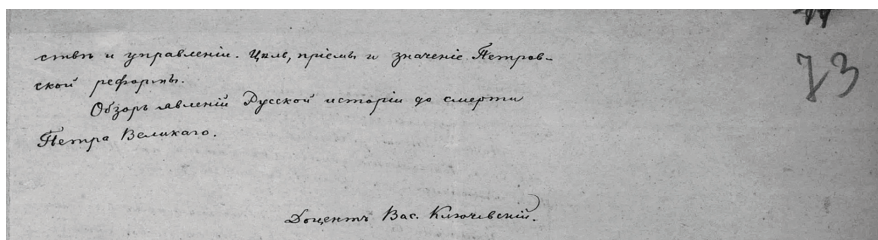 73
ствѣ и управленіи. Цѣль, пріемы и значеніе Петров-
ской реформы.
Обзоръ явленій Русской исторіи до смерти
Петра Великаго.
Доцентъ Вас. Ключевскій.